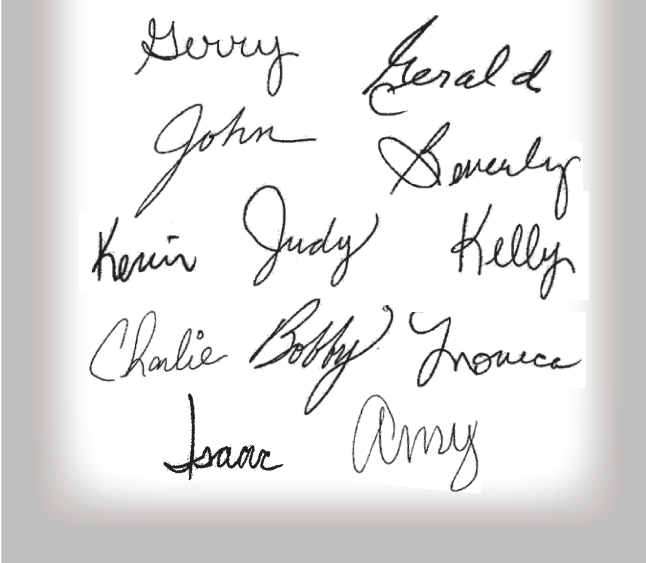 Gerry Gerald
John Beverly
Kevin Judy Kelly
Charlie Bobby Monica
Isaac Amy